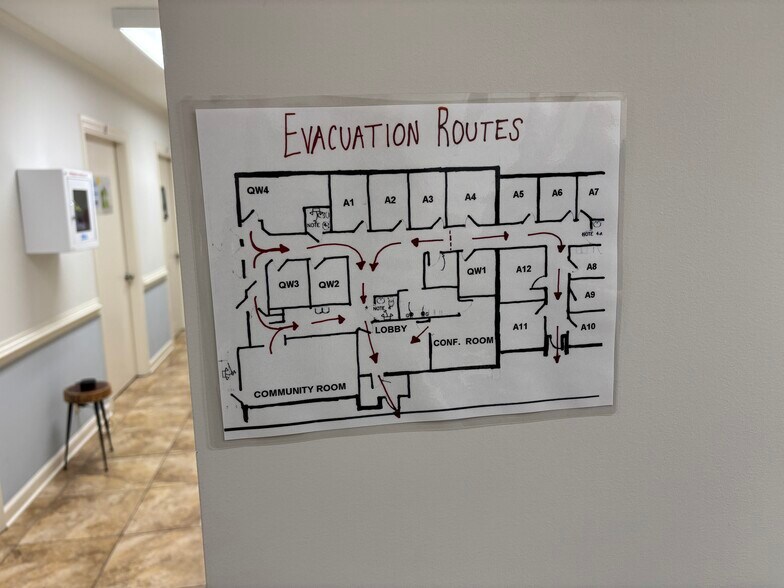 EVACUATION ROUTES
QW4
A1
A2
A3
A4
A5
A6
A7
NOTE
NOTE
QW3
QW2
QW1
A12
A8
A9
NOTE
LOBBY
CONF. ROOM
A11
A10
COMMUNITY ROOM